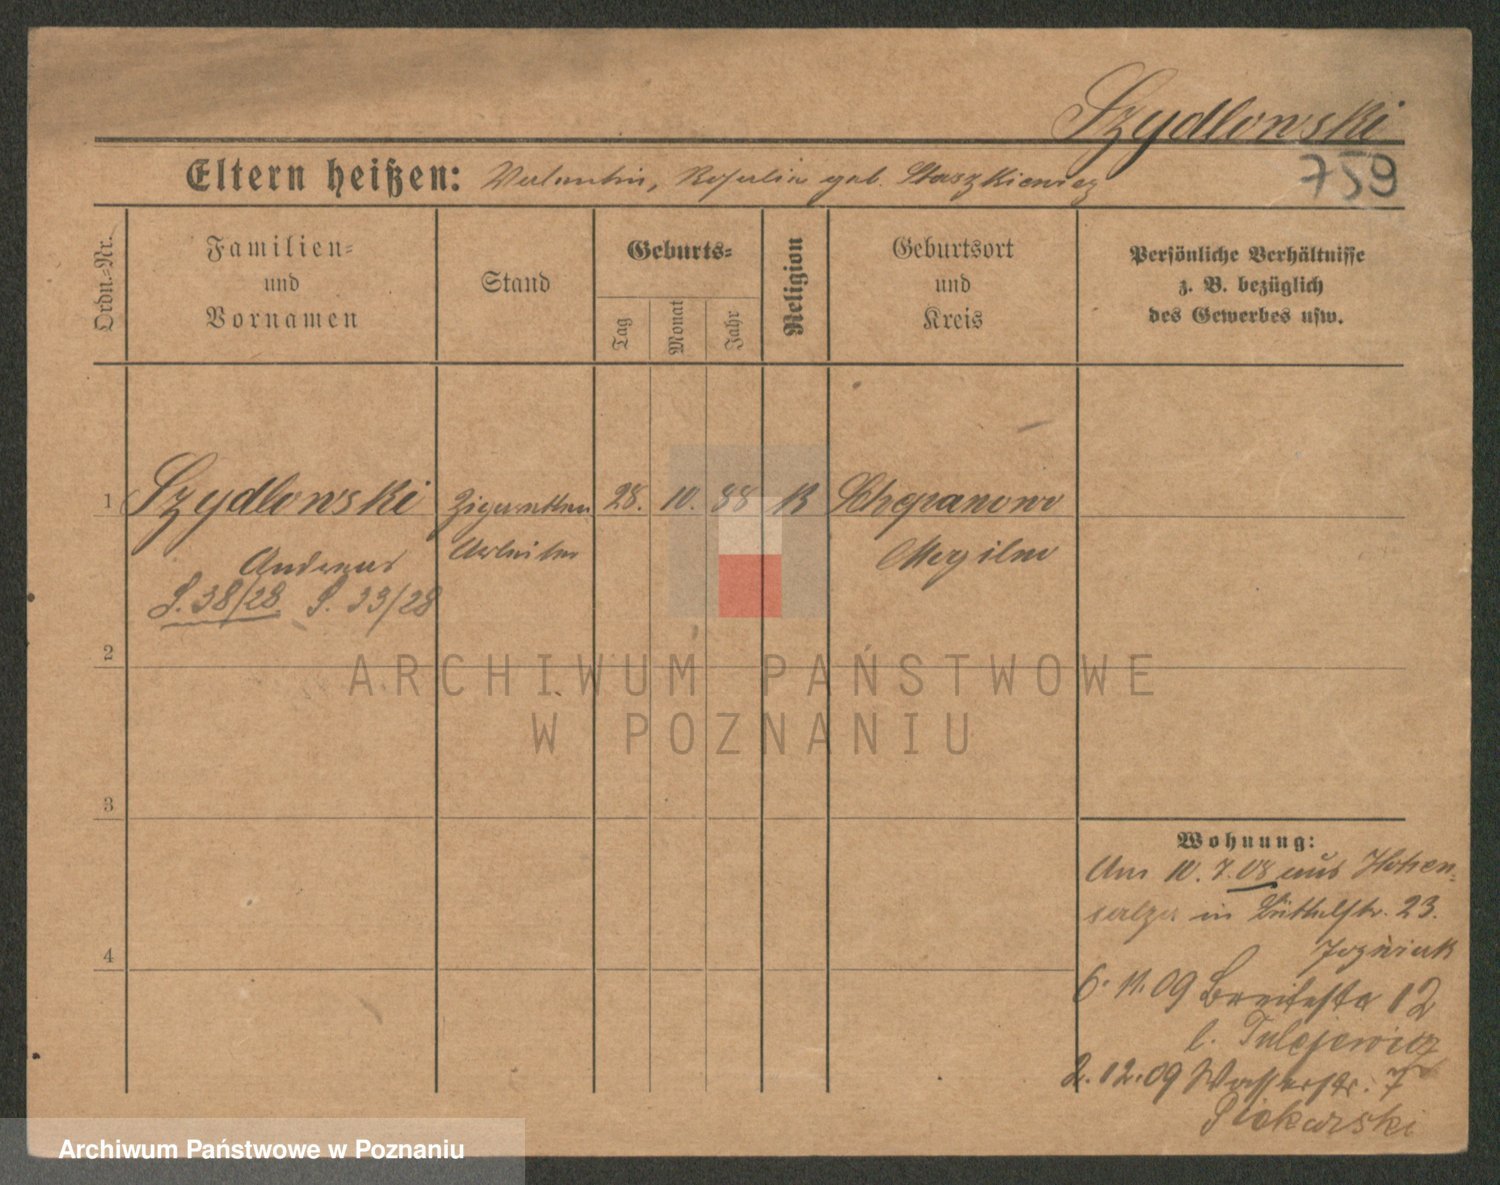 Szydlowski
759
Eltern heißen: Valentin, Rosalia geb. Staszkiewicz
Ordn.-Nr.
Familien-
und
Vornamen
Stand
Geburts-
Tag
Monat
Jahr
Religion
Geburtsort
und
Kreis
Persönliche Verhältnisse
z. B. bezüglich
des Gewerbes usw.
1 Szydlowski Zigaretten 28. 10. 88 Schepanowo
Andreas Arbeiter Mogilno
S. 38/28 S. 33/28
2
ARCHIWUM PAŃSTWOWE
W POZNANIU
3
Wohnung:
Am 10. 7. 08 aus Hohen-
salza in Büttelstr. 23.
Jozwiak
4
6. 11. 09 Breitestr 12
b. Tulejewicz
2. 12. 09 Wasserstr. 7
Piekarski
Archiwum Państwowe w Poznaniu